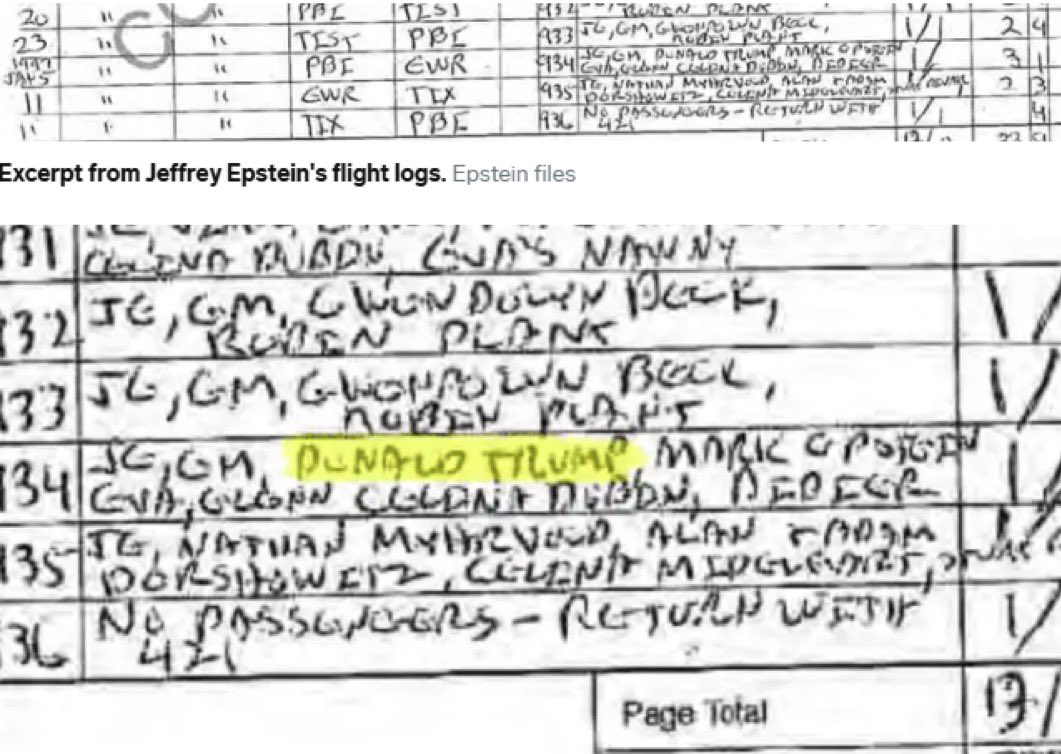 20 " " PBI TIST 932 RUBEN PLANT
23 " " TIST PBI 933 JE, GM, GWENDOLYN BECK,
RUBEN PLANT 1/1 2 4
1997
JAN 5 " " PBI EWR 934 JE, GM, DONALD TRUMP, MARK EPSTEIN
EVA, GLENN CELENA DUBIN, DIDIER 1/1 3 1
11 " " EWR TIX 935 JE, NATHAN MYHRVOLD, ALAN + ADAM
DORSHOWITZ, CELENA MIDELFART, 1/1 2 3
11 " " TIX PBI 936 NO PASSENGERS - RETURN WITH
421 1/1 4
Excerpt from Jeffrey Epstein's flight logs. Epstein files
931 CELINA DUBIN, EVA'S NANNY
932 JE, GM, GWENDOLYN BECK,
RUBEN PLANK
933 JE, GM, GWENDOLYN BECK,
RUBEN PLANT
934 JE, GM, DONALD TRUMP, MARK EPSTEIN
EVA, GLENN CELENA DUBIN, DIDIER
935 JE, NATHAN MYHRVOLD, ALAN + ADAM
DORSHOWITZ, CELENA MIDELFART,
936 NO PASSENGERS - RETURN WITH
421
Page Total 13/